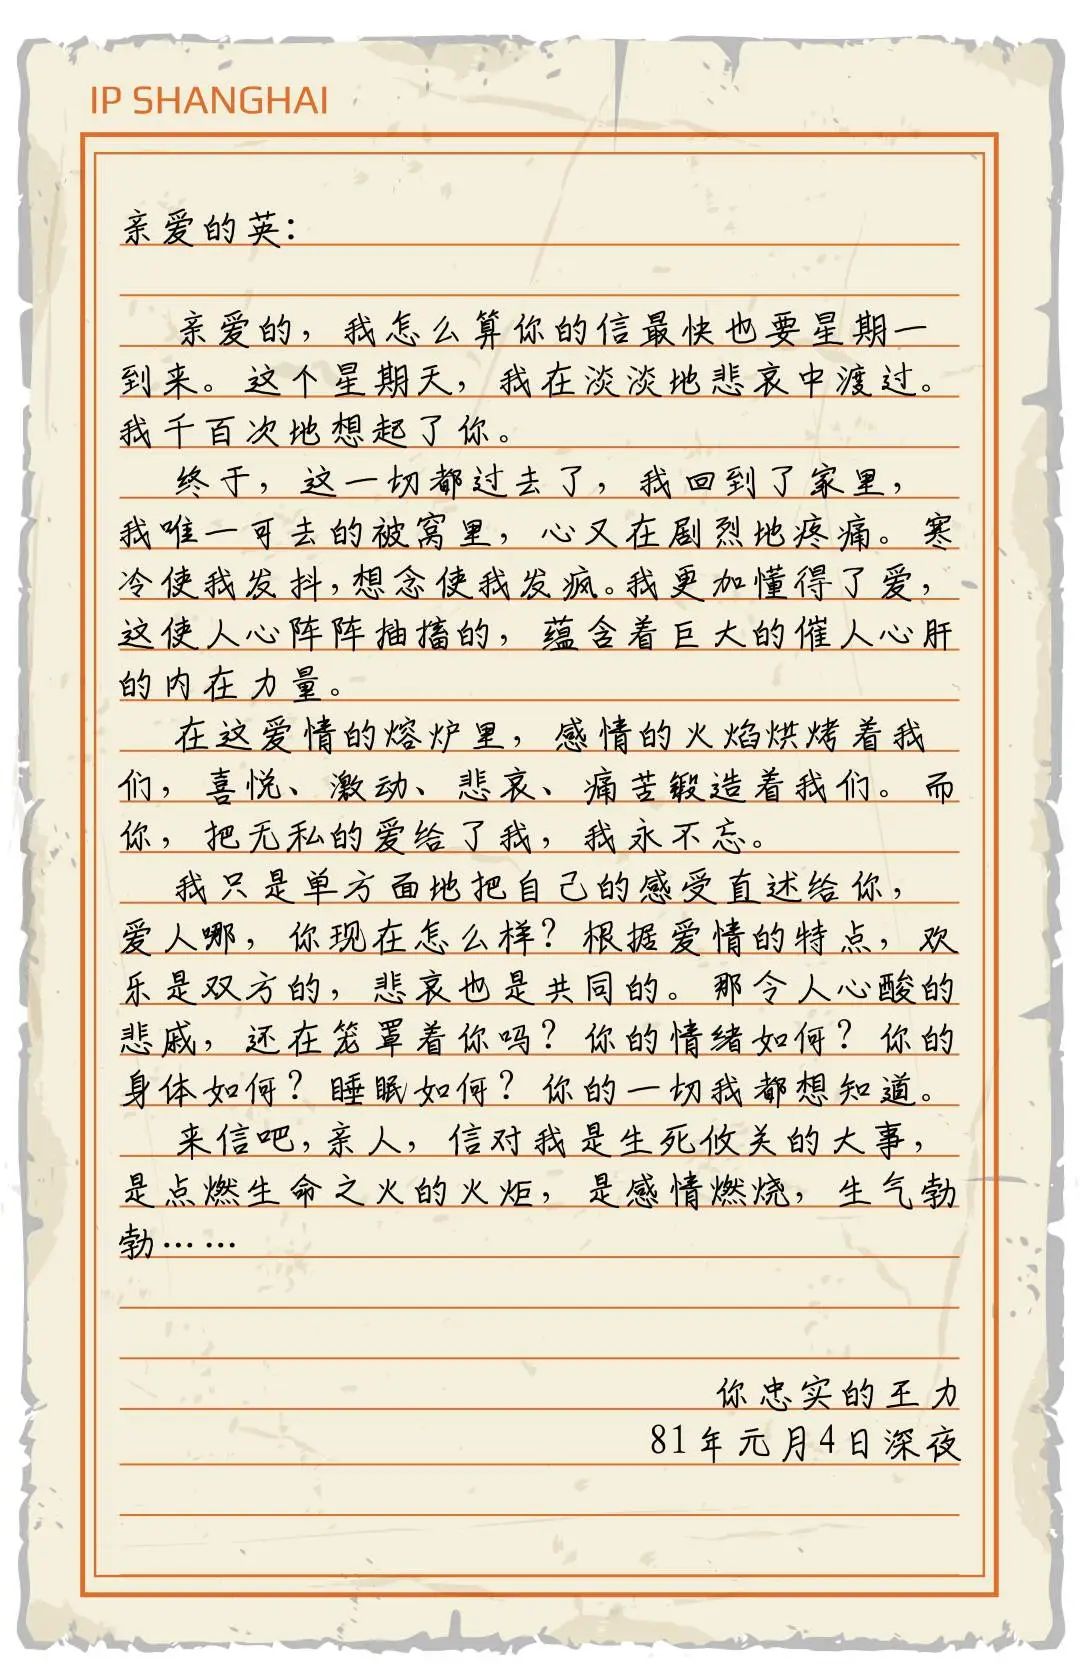 IP SHANGHAI
亲爱的英：
亲爱的，我怎么算你的信最快也要星期一
到来。这个星期天，我在淡淡地悲哀中渡过。
我千百次地想起了你。
终于，这一切都过去了，我回到了家里，
我唯一可去的被窝里，心又在剧烈地疼痛。寒
冷使我发抖，想念使我发疯。我更加懂得了爱，
这使人心阵阵抽搐的，蕴含着巨大的催人心肝
的内在力量。
在这爱情的熔炉里，感情的火焰烘烤着我
们，喜悦、激动、悲哀、痛苦锻造着我们。而
你，把无私的爱给了我，我永不忘。
我只是单方面地把自己的感受直述给你，
爱人哪，你现在怎么样？根据爱情的特点，欢
乐是双方的，悲哀也是共同的。那令人心酸的
悲戚，还在笼罩着你吗？你的情绪如何？你的
身体如何？睡眠如何？你的一切我都想知道。
来信吧，亲人，信对我是生死攸关的大事，
是点燃生命之火的火炬，是感情燃烧，生气勃
勃……
你忠实的王力
81年元月4日深夜